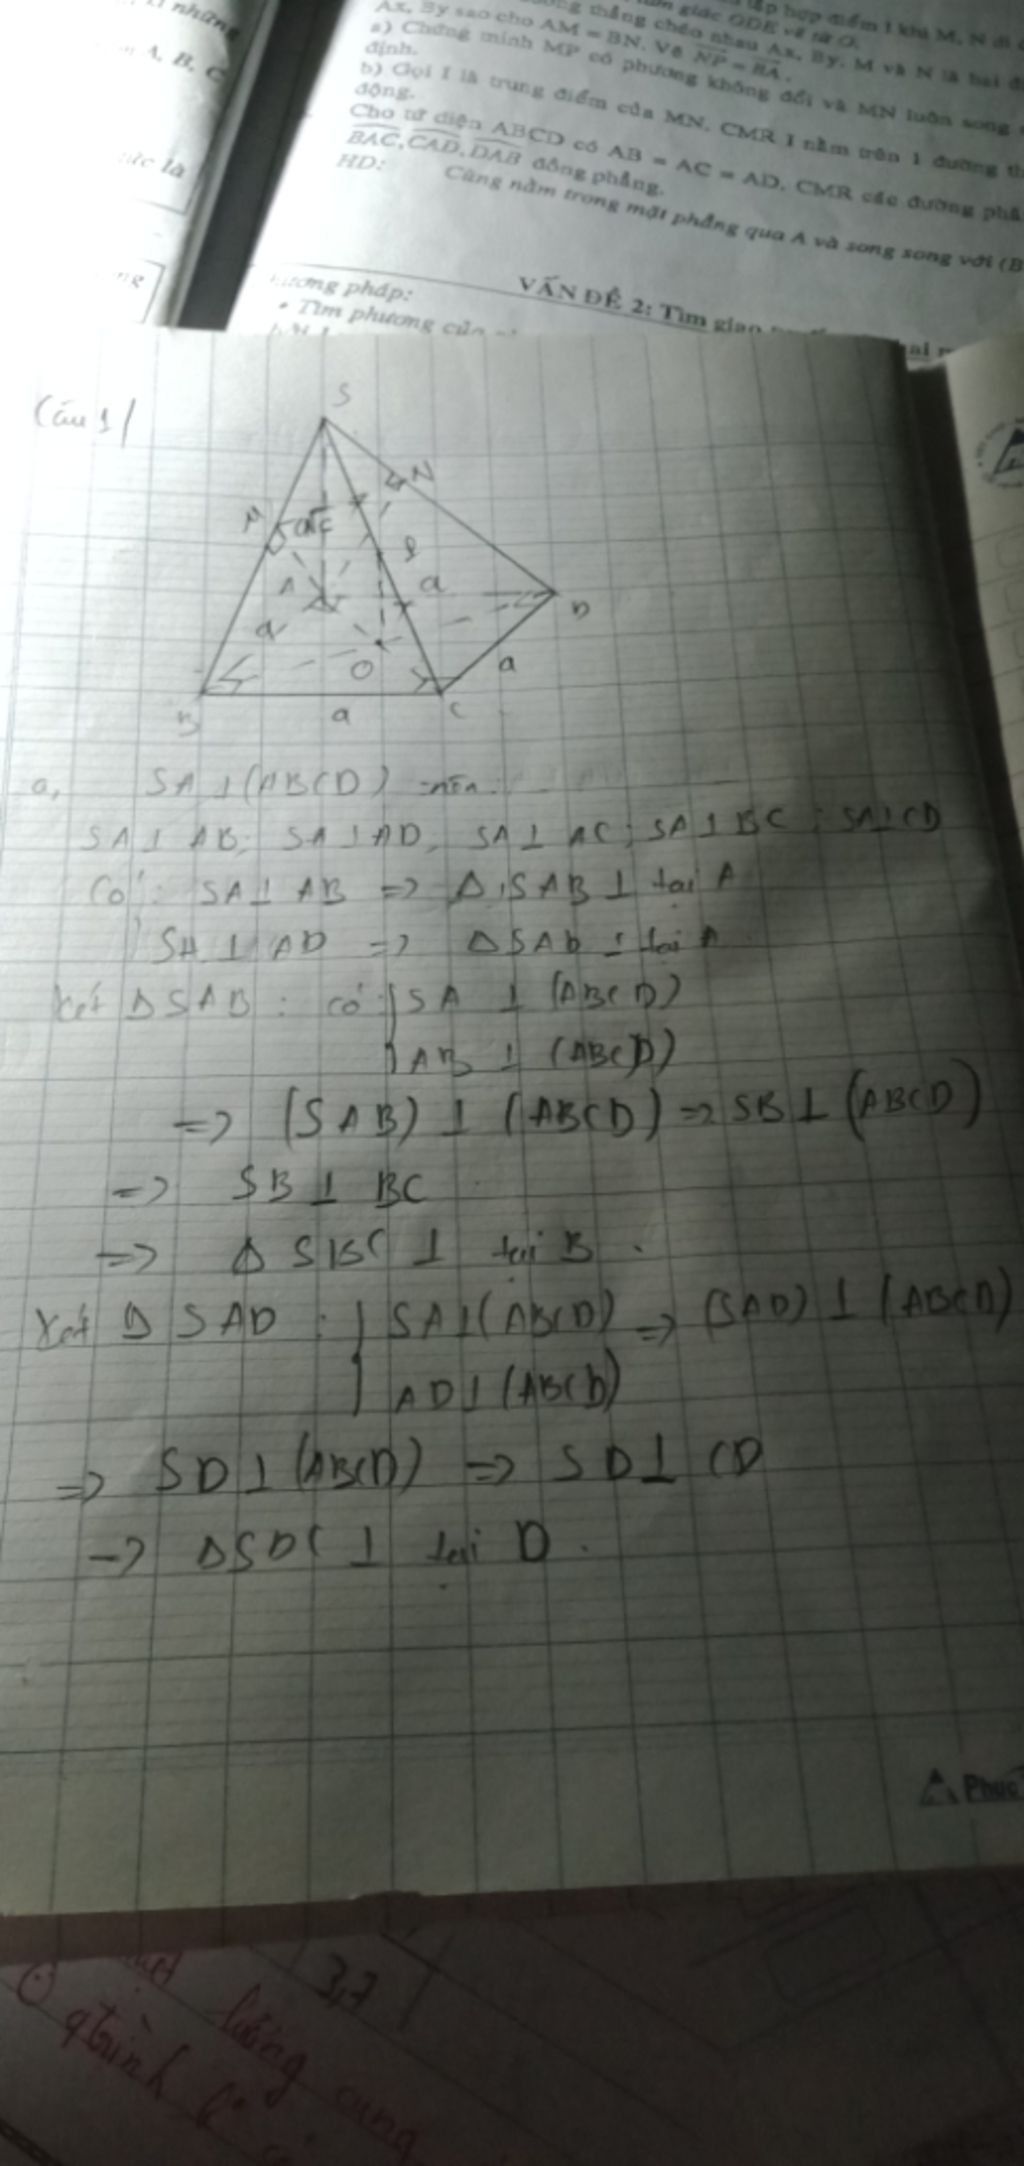 những
A, B, C
tức là
Ax, By sao cho AM = BN. Vẽ NP = BA.
a) Chứng minh MP có phương không đổi và MN luôn song
định.
b) Gọi I là trung điểm của MN. CMR I nằm trên 1 đường
động.
Cho tứ diện ABCD có AB = AC = AD. CMR các đường
BAC, CAD, DAB đồng phẳng.
HD: Cùng nằm trong mặt phẳng qua A và song song với (B
VẤN ĐỀ 2: Tìm giao
pháp:
• Tìm phương của
Câu 1/
S
M
N
A
a
a
D
O
a
B
a
C
a, SA ⊥ (ABCD) nên
SA ⊥ AB; SA ⊥ AD; SA ⊥ AC; SA ⊥ BC; SA ⊥ CD
Có: SA ⊥ AB => Δ SAB ⊥ tại A
SA ⊥ AD => Δ SAD ⊥ tại A
Xét Δ SAB : có { SA ⊥ (ABCD)
AB ⊥ (ABCD)
=> (SAB) ⊥ (ABCD) => SB ⊥ (ABCD)
=> SB ⊥ BC
=> Δ SBC ⊥ tại B.
Xét Δ SAD : { SA ⊥ (ABCD) => (SAD) ⊥ (ABCD)
AD ⊥ (ABCD)
=> SD ⊥ (ABCD) => SD ⊥ CD
-> Δ SDC ⊥ tại D.
Phuc
3,7
lượng cung